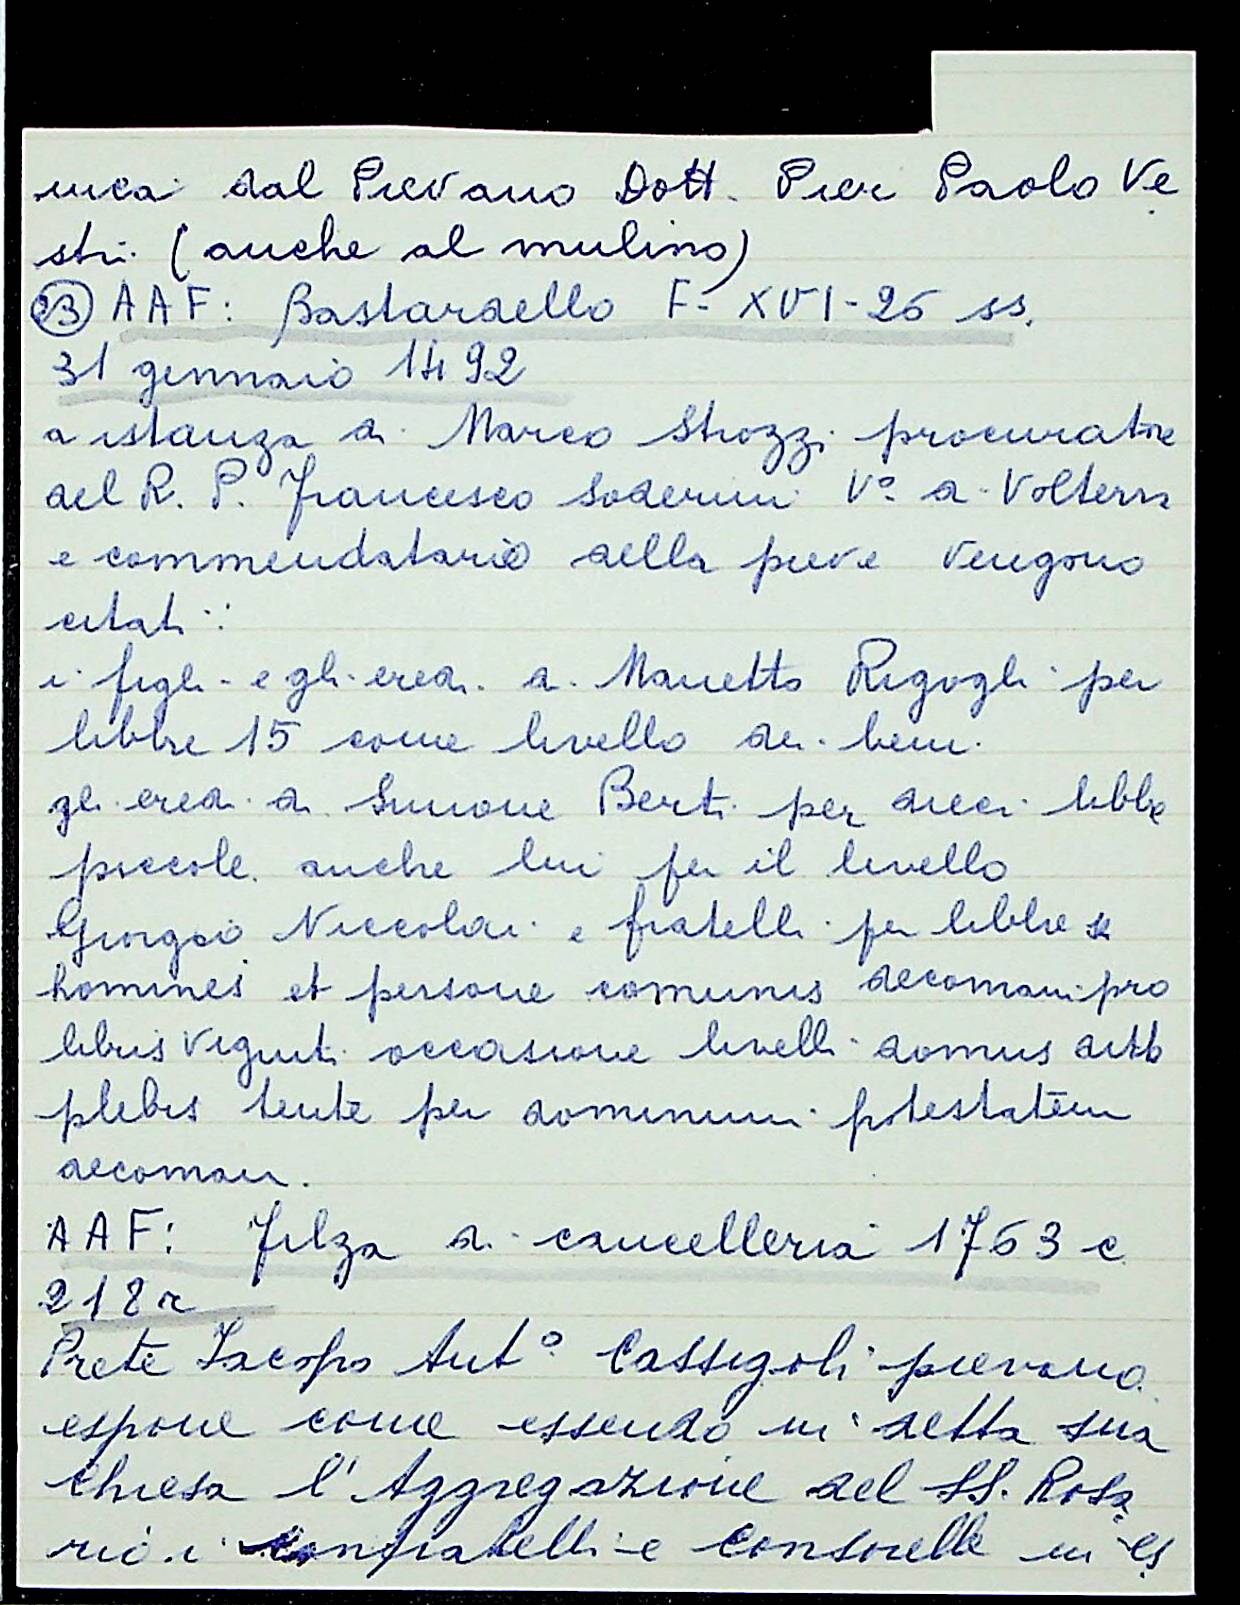 nica dal Pievano Dott. Pier Paolo Ve
stri (anche al mulino)
AAF: Bastardello F- XVI-26 ss.
31 gennaio 1492
a istanza di Marco Strozzi procuratore
del R. P. Francesco Soderini Vº di Volterra
e commendatario della pieve vengono
citati:
i figli e gli eredi di Manetto Rigogli per
libbre 15 come livello dei beni
gli eredi di Simone Berti per dieci libbre
piccole anche lui per il livello
Giorgio Niccolai e fratelli per libbre
homines et persone comunis decomani pro
libris viginti occasione livelli domus ditte
plebis tente per dominum potestatem
decoman.
AAF: Filza di cancelleria 1763 c
218r
Prete Iacopo Antº Cassigoli pievano
espone come essendo in detta sua
Chiesa l'Aggregazione del SS. Rosa
rio i confratelli e consorelle in es